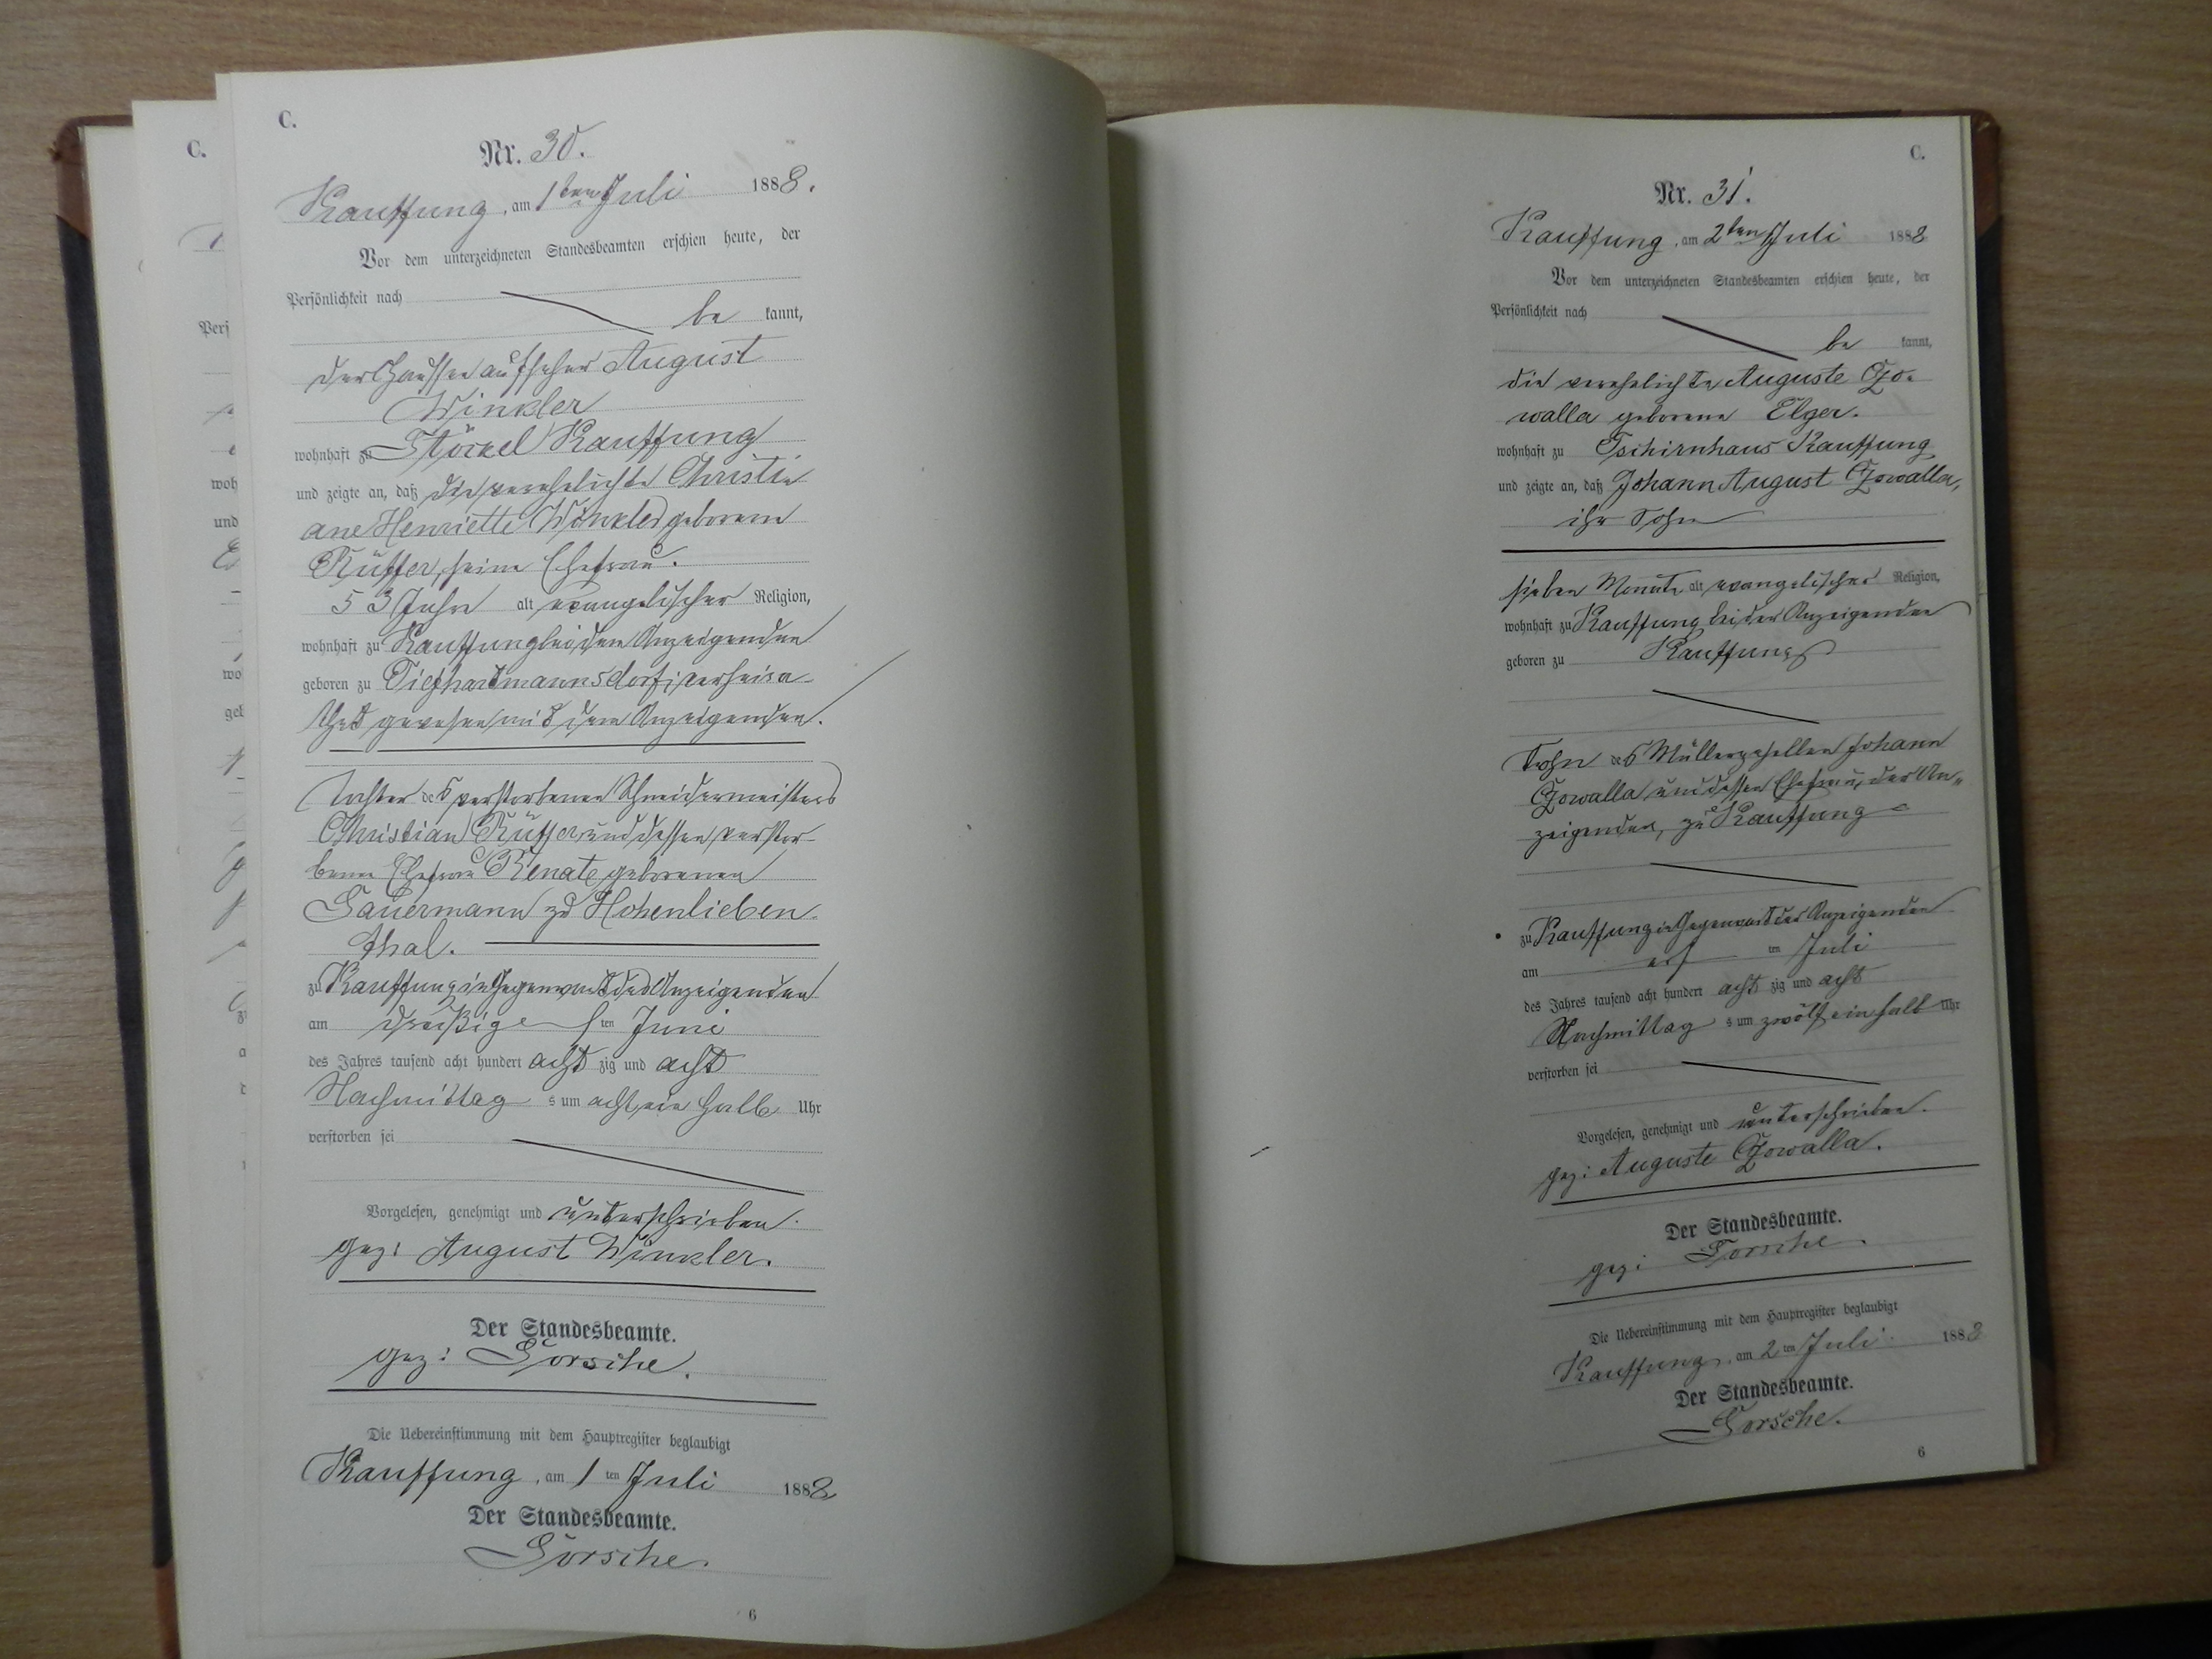 C.
Nr. 30.
Kauffung, am 1ten Juli 1888.
Vor dem unterzeichneten Standesbeamten erschien heute, der
Persönlichkeit nach
be kannt,
der Chausseeaufseher August
Winkler
wohnhaft zu Stöckel Kauffung
und zeigte an, daß die verehelichte Christi
ane Henriette Winkler geborene
Rüffer, seine Ehefrau.
53 Jahre alt evangelischer Religion,
wohnhaft zu Kauffung bei dem Anzeigenden
geboren zu Tiefhartmannsdorf, verheira-
thet gewesen mit dem Anzeigenden.
Tochter des verstorbenen Schneidermeisters
Christian Rüffer und dessen verstor-
bene Ehefrau Renate geborenen
Sauermann zu Hohenlieben-
thal.
zu Kauffung in Gegenwart des Anzeigenden
am dreißigs ten Juni
des Jahres tausend acht hundert acht zig und acht
Nachmittag s um acht ein halb Uhr
verstorben sei
Vorgelesen, genehmigt und unterschrieben.
gez: August Winkler.
Der Standesbeamte.
gez: Gorsche.
Die Uebereinstimmung mit dem Hauptregister beglaubigt
Kauffung, am 1 ten Juli 1888
Der Standesbeamte.
Gorsche.
6
C.
Pers
woh
und
wo
geb
C.
Nr. 31.
Kauffung, am 2ten Juli 1888
Vor dem unterzeichneten Standesbeamten erschien heute, der
Persönlichkeit nach
be kannt,
die verehelichte Auguste Czo-
walla geborene Elger.
wohnhaft zu Tschirnhaus Kauffung
und zeigte an, daß Johann August Czowalla,
ihr Sohn
sieben Monate alt evangelischer Religion,
wohnhaft zu Kauffung bei der Anzeigenden
geboren zu Kauffung
Sohn des Müllergesellen Johann
Czowalla und dessen Ehefrau, der An-
zeigenden, zu Kauffung
zu Kauffung in Gegenwart der Anzeigenden
am ers ten Juli
des Jahres tausend acht hundert acht zig und acht
Nachmittag s um zwölf ein halb Uhr
verstorben sei
Vorgelesen, genehmigt und unterschrieben.
gez: Auguste Czowalla.
Der Standesbeamte.
gez: Gorsche.
Die Uebereinstimmung mit dem Hauptregister beglaubigt
Kauffung, am 2 ten Juli 1888
Der Standesbeamte.
Gorsche.
6